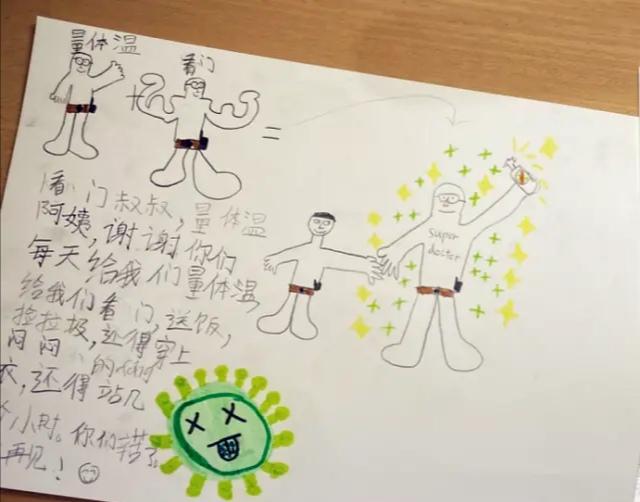 量体温
看门
+
=
super
doctor
看门叔叔，量体温
阿姨，谢谢你们
每天给我们量体温，
给我们看门，送饭，
捡垃圾，还得穿上
闷闷的
衣，还得站几
小时。你们辛苦了
再见！